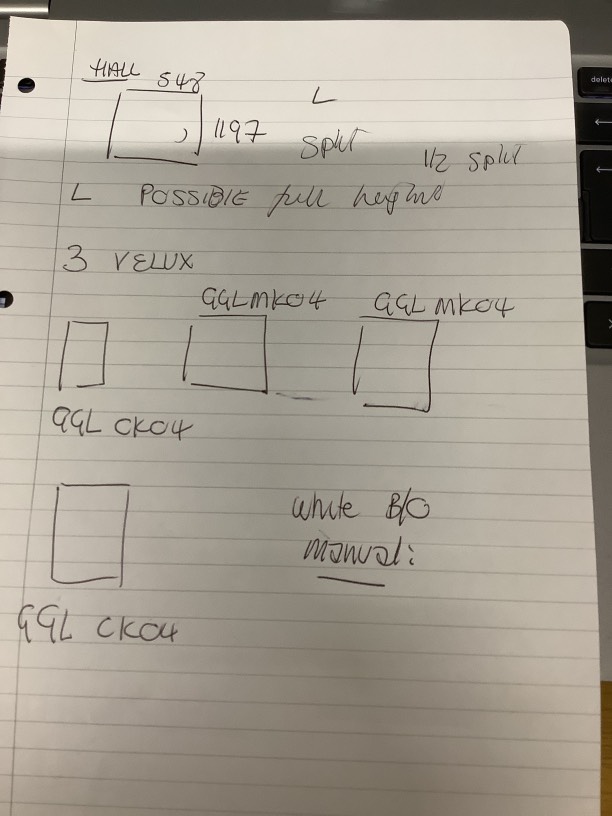 HALL 548
1197
L
Split
1/2 SPLIT
L POSSIBLE full height
3 VELUX
GGL MK04 GGL MK04
GGL CK04
White B/O
manual:
GGL CK04
delete